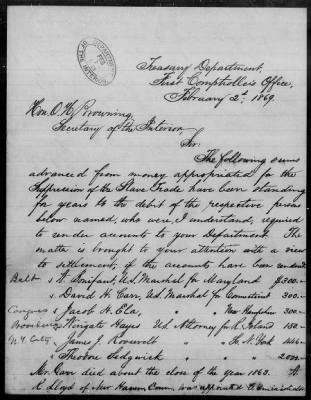 DEPARTMENT OF THE INTERIOR
FEB
Treasury Department,
First Comptroller's Office,
February 2d, 1869.
Hon. O. H. Browning,
Secretary of the Interior
Sir:
The following sums
advanced from money appropriated for the
Suppression of the Slave Trade have been standing
for years to the debit of the respective persons
below named, who were, I understand, required
to render accounts to your Department. The
matter is brought to your attention with a view
to settlement, if the accounts have been rendered
Balt W. Bonifant, U.S. Marshal for Maryland $300.-
David H. Carr, U.S. Marshal for Connecticut 300-
Congress Jacob H. Ela, " " New Hampshire 300-
Providence Wingate Hayes U.S. Attorney for R. Island 150-
N.Y. City James J. Roosevelt " " N. York
Theodore Sedgwick " "
Mr. Carr died about the close of the year 1863. A
R Lloyd of New Haven Conn. was appointed